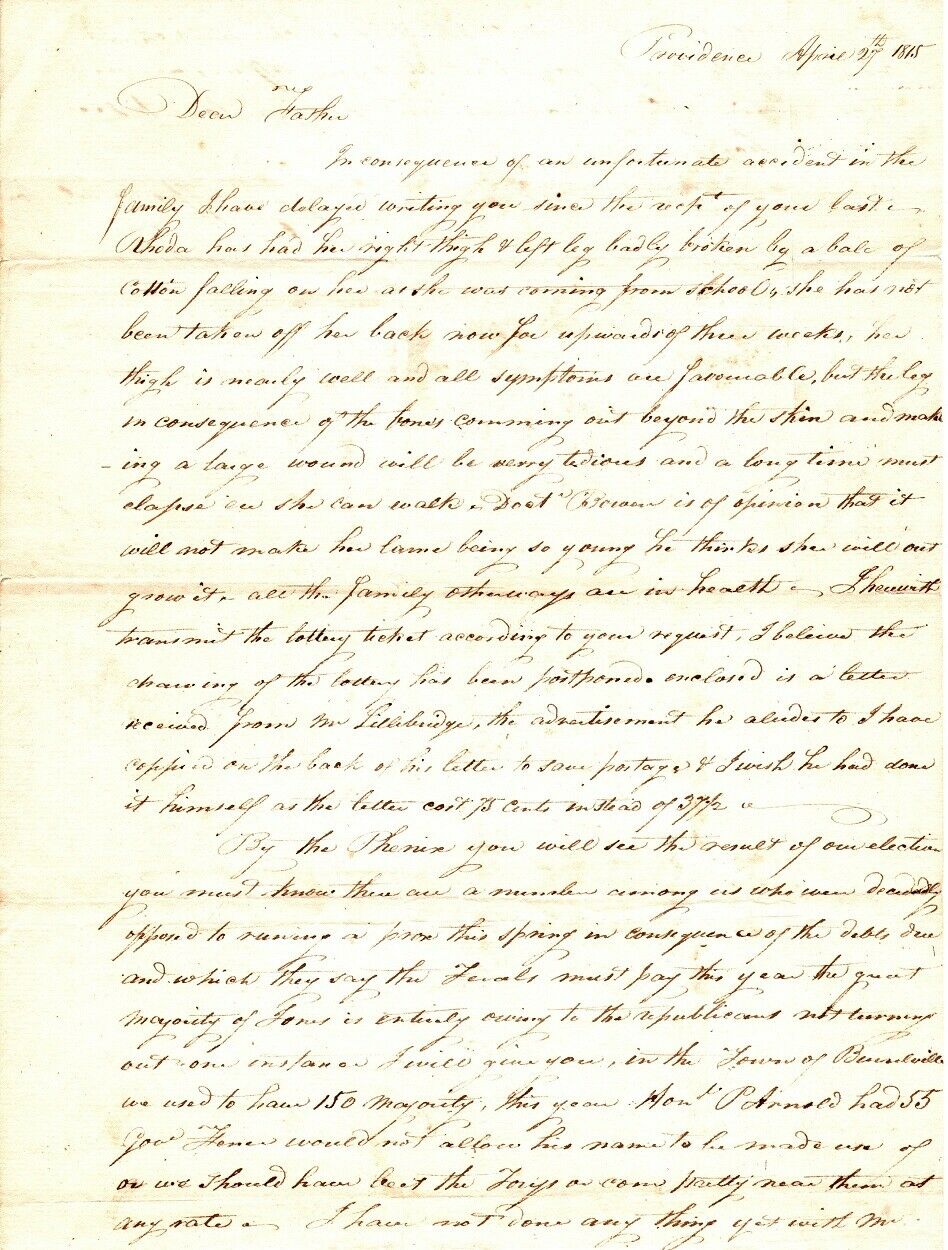 Providence April 27th 1815
Dear my Father
In consequence of an unfortunate accident in the
family I have delayed writing you since the recpt of your last
Rhoda has had her right thigh & left leg badly broken by a bale of
Cotton falling on her as she was coming from School, she has not
been taken off her back now for upwards of three weeks, her
thigh is nearly well and all symptoms are favourable, but the leg
in consequence of the bones comming out beyond the skin and mak
-ing a large wound will be verry tedious and a long time must
elapse ere she can walk Doct Bowen is of opinion that it
will not make her lame being so young he thinks she will out
grow it all the family otherways are in health I herewith
transmit the lottery ticket according to your request, I believe the
drawing of the lottery has been postponed. enclosed is a letter
received from Mr Lillibridge, the advertisement he aludes to I have
coppied on the back of his letter to save postage & I wish he had done
it himself as the letter cost 75 cents instead of 37½
By the Phenix you will see the result of our election
you must know there are a number among us who were decidedly
opposed to runing a prox this spring in consequence of the debts due
and which they say the Ferals must pay this year the great
majority of Jones is entirely owing to the republicans not turning
out one instance I will give you, in the Town of Burrelville
we used to have 150 majority, this year Honl P Arnold had 55
Govr Fenner would not allow his name to be made use of
or we should have beet the Torys or come pretty near them at
any rate I have not done any thing yet with Mr